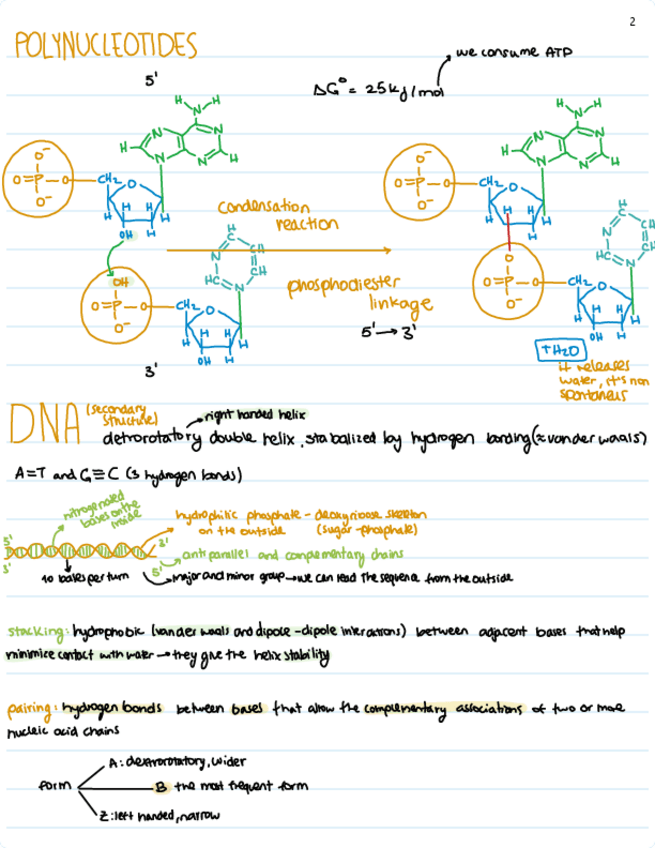 2
POLYNUCLEOTIDES
we consume ATP
5'
ΔG°= 25kJ/mol
condensation
reaction
phosphodiester
linkage
5'→3'
3'
+H2O
it releases
water, it's non
spontaneus
DNA (secondary
structure)
right handed helix
detrorotatory double helix, stabalized by hydrogen bonding (≈vander waals)
A=T and G≡C (3 hydrogen bonds)
nitrogenated
bases on the
inside
hydrophilic phosphate - deoxyribose skeleton
on the outside (sugar-phosphate)
5' 3'
3' 5'
antiparallel and complementary chains
10 bases per turn
major and minor group→we can read the sequence from the outside
stacking: hydrophobic (van der waals and dipole-dipole interactions) between adjacent bases that help
minimice contact with water→they give the helix stability
pairing: hydrogen bonds between bases that allow the complementary associations of two or more
nucleic acid chains
A: dextrorotatory, wider
form B the most frequent form
Z: left handed, narrow